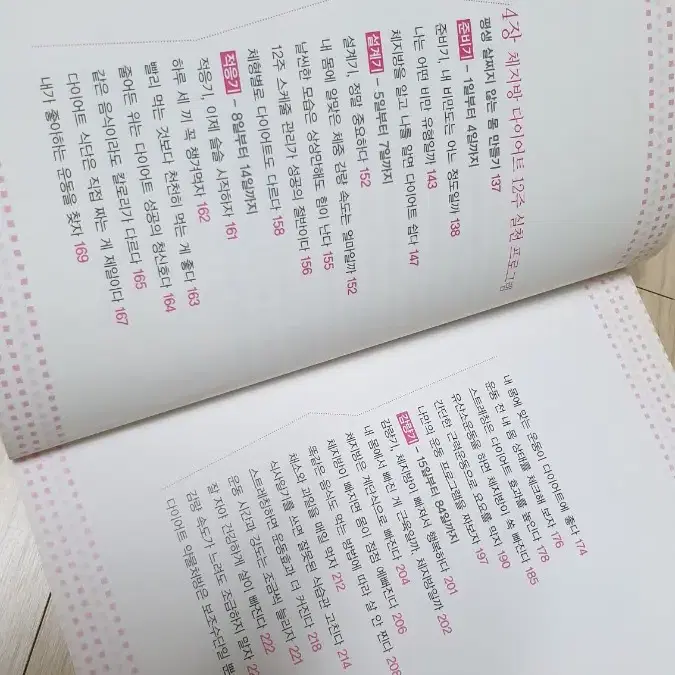 4장 체지방 다이어트 12주 실천 프로그램
평생 살찌지 않는 몸 만들기 137
준비기 - 1일부터 4일까지
준비기, 내 비만도는 어느 정도일까 138
나는 어떤 비만 유형일까 143
체지방을 알고 나를 알면 다이어트 쉽다 147
설계기 - 5일부터 7일까지
설계기, 정말 중요하다 152
내 몸에 알맞은 체중 감량 속도는 얼마일까 152
날씬한 모습은 상상만해도 힘이 난다 155
12주 스케줄 관리가 성공의 절반이다 156
체형별로 다이어트도 다르다 158
적응기 - 8일부터 14일까지
적응기, 이제 슬슬 시작하자 161
하루 세 끼 꼭 챙겨먹자 162
빨리 먹는 것보다 천천히 먹는 게 좋다 163
줄어든 위는 다이어트 성공의 청신호다 164
같은 음식이라도 칼로리가 다르다 165
다이어트 식단은 직접 짜는 게 제일이다 167
내가 좋아하는 운동을 찾자 169
내 몸에 맞는 운동이 다이어트에 좋다 174
운동 전 내 몸 상태를 체크해 보자 176
스트레칭은 다이어트 효과를 높인다 178
유산소운동을 하면 체지방이 쏙 빠진다 185
간단한 근력운동으로 요요를 막자 190
나만의 운동 프로그램을 짜보자 197
감량기 - 15일부터 84일까지
감량기, 체지방이 빠져서 행복하다 201
내 몸에서 빠진 게 근육일까, 체지방일까 202
체지방은 계단식으로 빠진다 204
체지방이 빠지면 몸이 점점 예뻐진다 206
똑같은 음식도 먹는 방법에 따라 살 안 찐다 208
채소와 과일을 매일 먹자 212
식사일기를 쓰면 잘못된 식습관 고친다 214
스트레칭하면 운동효과 더 커진다 218
운동 시간과 강도는 조금씩 늘리자 221
잘 자야 건강하게 살이 빠진다 222
감량 속도가 느려도 조급하지 말자
다이어트 약물처방은 보조수단일 뿐